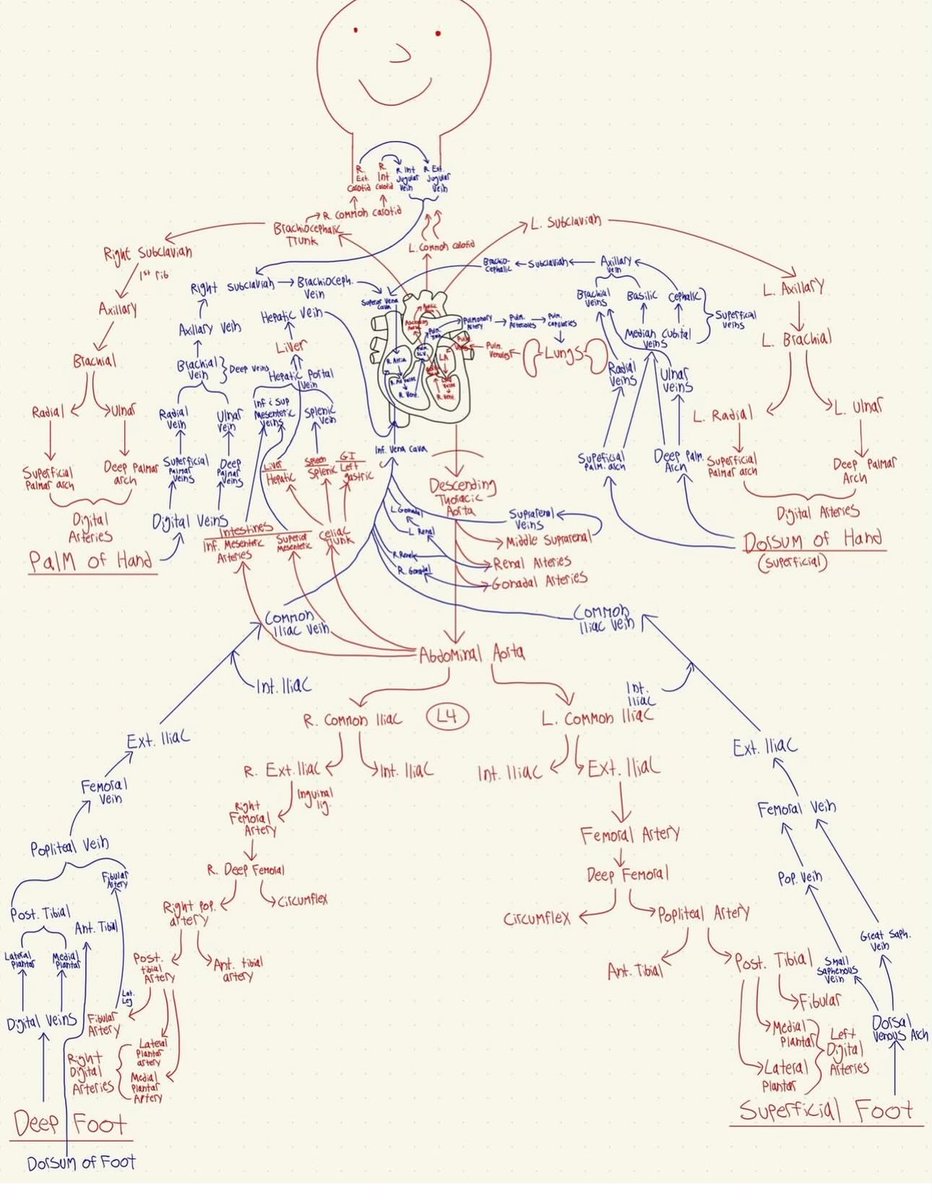 R.
Ext.
Carotid
R.
Int
Carotid
R. Int
Jugular
Vein
R. Ext.
Jugular
Vein
R. Common Carotid
Brachiocephalic
Trunk
L. Common Carotid
L. Subclavian
Right Subclavian
1st rib
Axillary
Brachial
Radial
Ulnar
Superficial
Palmar arch
Deep Palmar
arch
Digital
Arteries
Palm of Hand
Right Subclavian
Brachioceph.
Vein
Axillary Vein
Brachial
Vein
Deep Veins
Radial
Vein
Ulnar
Vein
Superficial
Palmar
Veins
Deep
Palmar
Veins
Digital Veins
Hepatic Vein
Liver
Hepatic Portal
Vein
Inf & Sup
Mesenteric
Veins
Splenic
Vein
Superior Vena
Cava
Brachio-
Cephalic
Subclavian
Axillary
Vein
Brachial
Veins
Basilic
Cephalic
Superficial
Veins
Median Cubital
Veins
Radial
Veins
Ulnar
Veins
Superficial
Palm. arch
Deep Palm.
Arch
Pulmonary
Artery
Pulm.
Arterioles
Pulm.
Capillaries
Lungs
Pulm.
Venules
R. Atria
LA
R. Vent.
L. Axillary
L. Brachial
L. Radial
L. Ulnar
Superficial
Palmar arch
Deep Palmar
Arch
Digital Arteries
Dorsum of Hand
(Superficial)
Inf. Vena Cava
Liver
Hepatic
Spleen
Splenic
GI
Left
gastric
Descending
Thoracic
Aorta
Intestines
Inf. Mesenteric
Arteries
Superior
Mesenteric
Celiac
Trunk
L. Gonadal
L. Renal
R. Renal
R. Gonadal
Suprarenal
Veins
Middle Suprarenal
Renal Arteries
Gonadal Arteries
Common
Iliac Vein
Common
Iliac Vein
Abdominal Aorta
Int. Iliac
Int.
Iliac
Ext. Iliac
Ext. Iliac
R. Common Iliac
L4
L. Common Iliac
R. Ext. Iliac
Int. Iliac
Int. Iliac
Ext. Iliac
Inguinal
lig.
Right
Femoral
Artery
Femoral Artery
R. Deep Femoral
Deep Femoral
Circumflex
Circumflex
Right Pop.
artery
Popliteal Artery
Post.
tibial
Artery
Ant. tibial
artery
Ant. Tibial
Post. Tibial
Fibular
Artery
Fibular
Lateral
Plantar
artery
Medial
Plantar
Artery
Right
Digital
Arteries
Medial
Plantar
Lateral
Plantar
Left
Digital
Arteries
Femoral
Vein
Popliteal Vein
Fibular
Artery
Post. Tibial
Ant. Tibial
Lateral
Plantar
Medial
Plantar
Lat.
Leg
Digital Veins
Deep Foot
Dorsum of Foot
Femoral Vein
Pop. Vein
Great Saph.
Vein
Small
Saphenous
Vein
Dorsal
Venous Arch
Superficial Foot